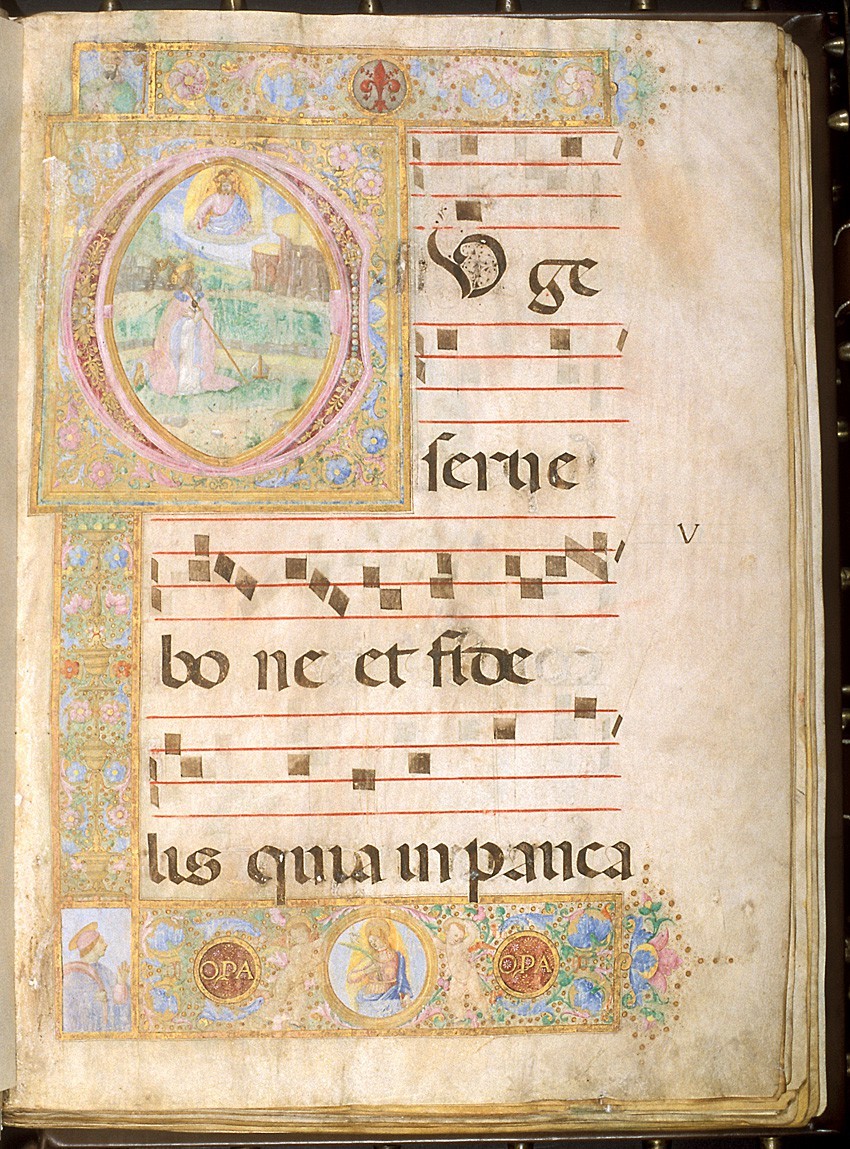 EU ge
serue
V
bo ne et fide
lis quia in pauca
OPA OPA